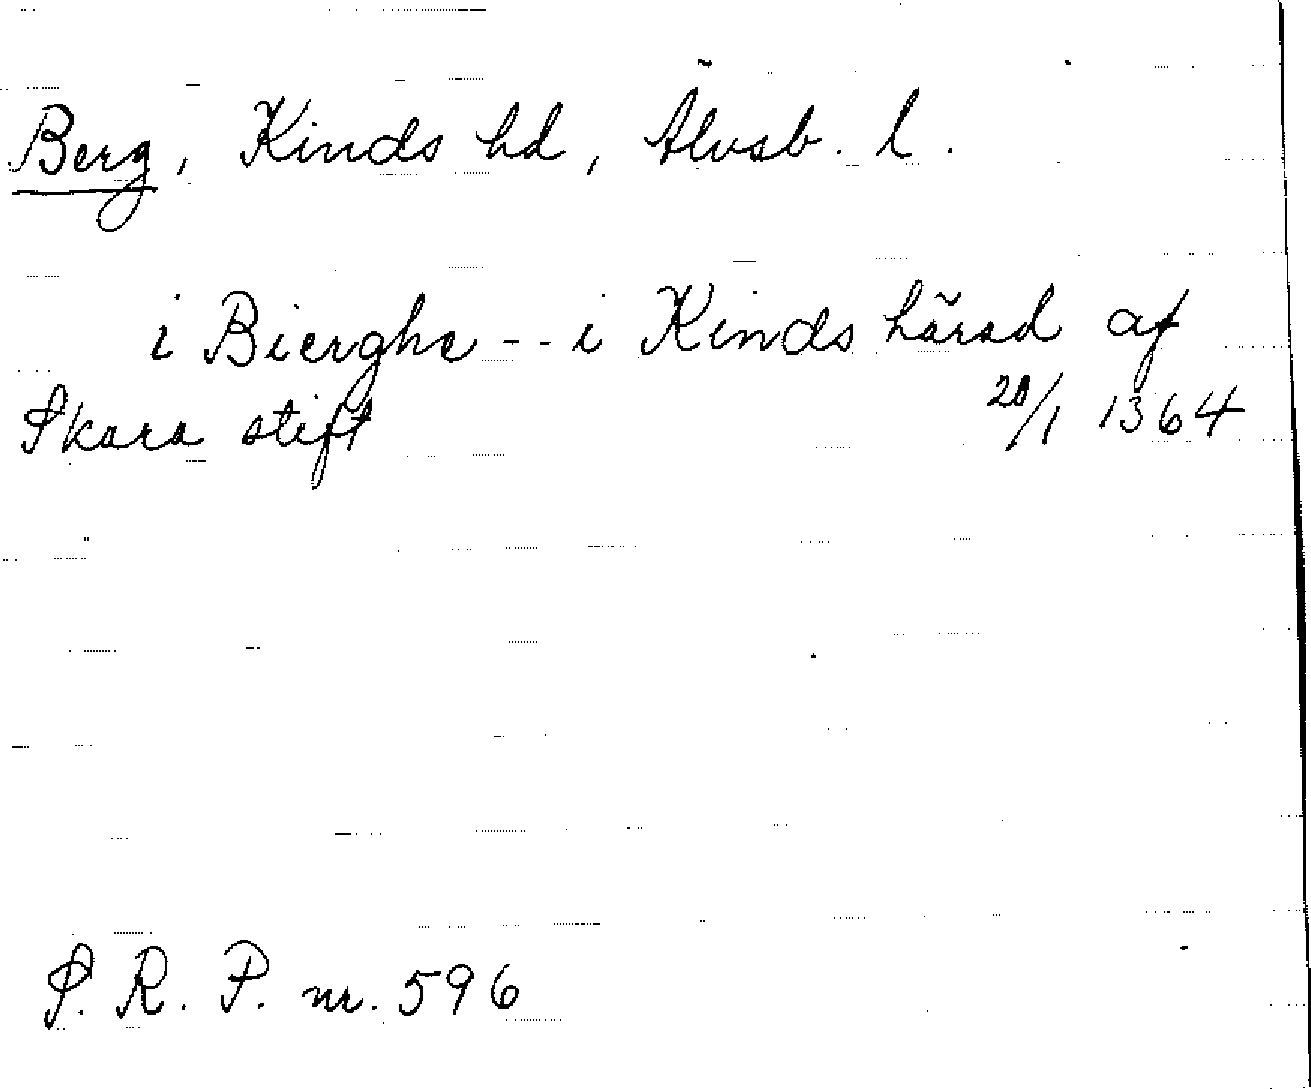 Berg, Kinds hd, Älvsb. l.
i Bierghe -- i Kinds härad af
Skara stift 20/1 1364
S. R. P. nr. 596